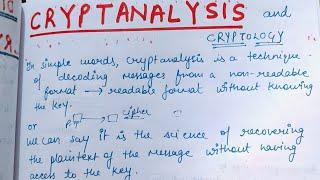 CRYPTANALYSIS and
CRYPTOLOGY
In simple words, cryptanalysis is a technique
of decoding messages from a non-readable
format → readable format without knowing
the key.
or P → cipher
we can say it is the science of recovering
the plaintext of the message without having
access to the key.